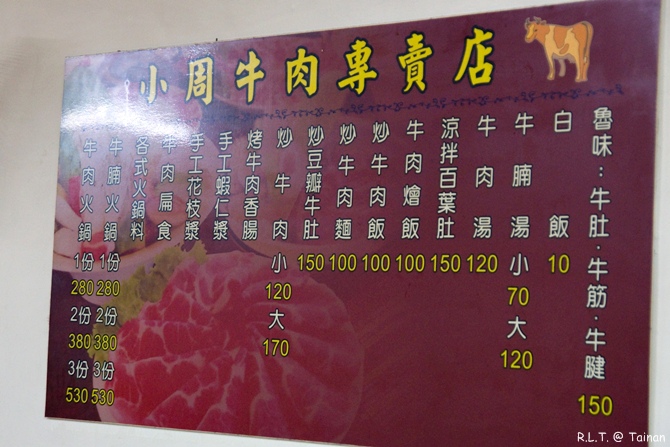 小周牛肉專賣店
魯味：牛肚．牛筋．牛腱 150
白飯 10
牛腩湯 小 70 大 120
牛肉湯 120
涼拌百葉肚 150
牛肉燴飯 100
炒牛肉飯 100
炒牛肉麵 100
炒豆瓣牛肚 150
炒牛肉 小 120 大 170
烤牛肉香腸
手工蝦仁漿
手工花枝漿
牛肉扁食
各式火鍋料
牛腩火鍋 1份 280 2份 380 3份 530
牛肉火鍋 1份 280 2份 380 3份 530
R.L.T. @ Tainan